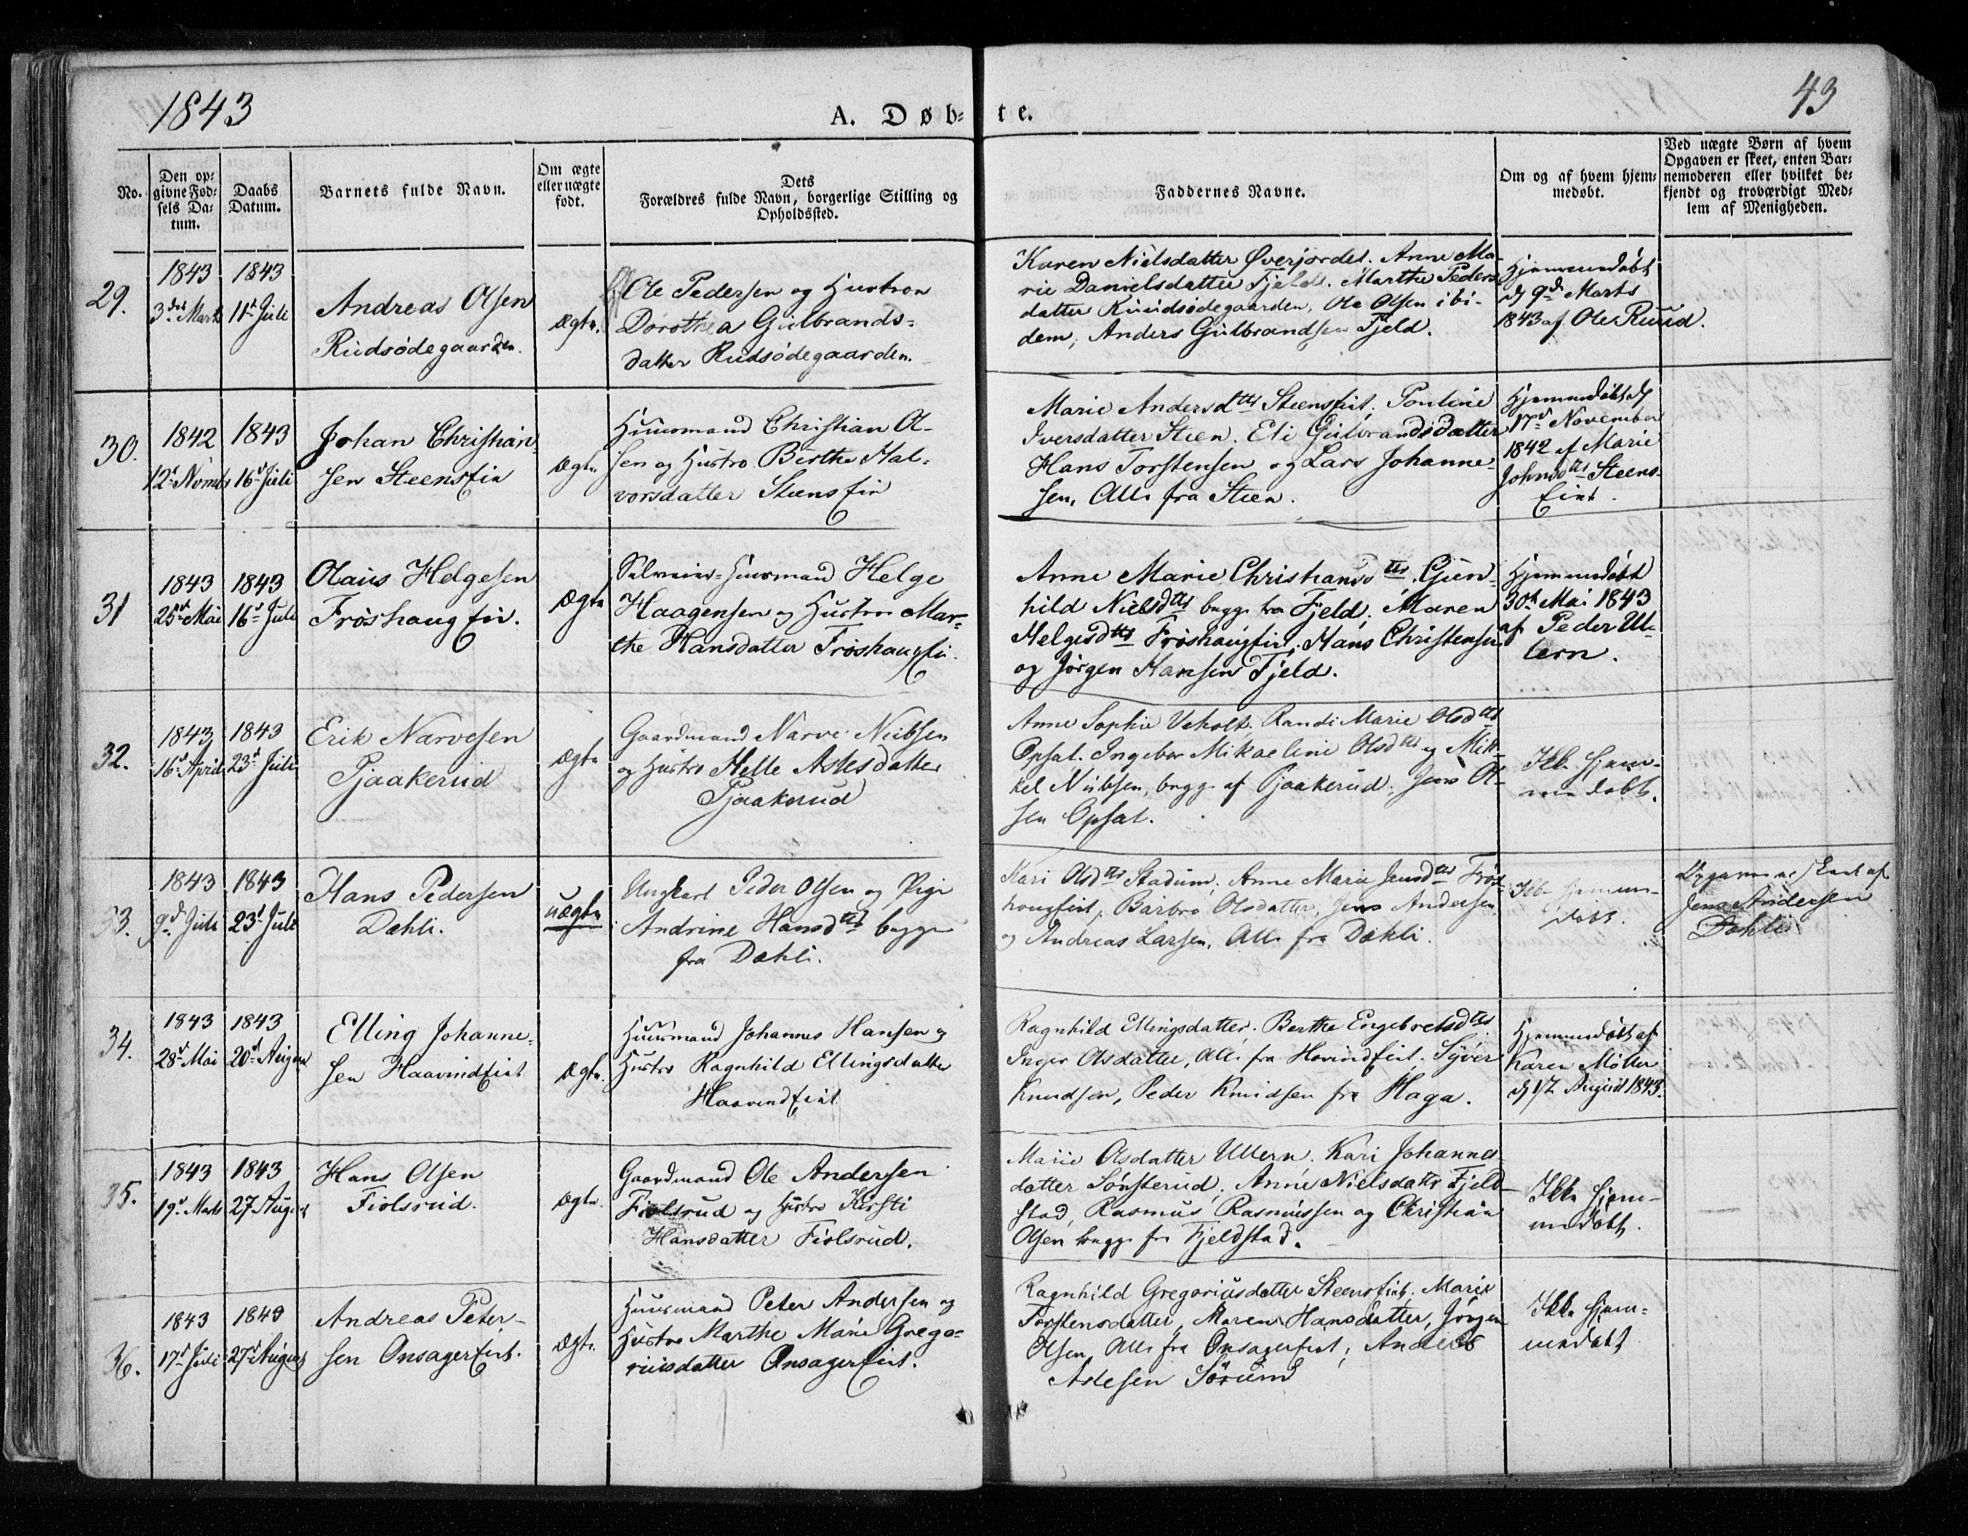 1843
A. Døb-
te.
43
No.
Den op-
givne Fød-
sels Da-
tum.
Daabs
Datum.
Barnets fulde Navn.
Om ægte
eller uægte
født.
Dets
Forældres fulde Navn, borgerlige Stilling og
Opholdssted.
Faddernes Navne.
Om og af hvem hjem-
medøbt.
Ved uægte Børn af hvem
Opgaven er skeet, enten Bar-
nemoderen eller hvilket be-
kjendt og troværdigt Med-
lem af Menigheden.
29.
1843
3die Marts
1843
11t Juli
Andreas Olsen
Rudsødegaarden.
Ægte.
Ole Pedersen og Hustroe
Dorothea Gulbrands-
datter Rudsødegaarden.
Karen Nielsdatter Øverjordet. Anne Ma-
rie Danielsdatter Fjeld. Marthe Peders-
datter Ruudsødegaarden, Ole Olsen ibi-
dem, Anders Gulbrandsen Fjeld.
Hjemmedøbt
d 9d Marts
1843 af Ole Ruud.
30.
1842
12t Novmb
1843
16d Juli
Johan Christian-
sen Steensein
Ægte.
Huusmand Christian Ol-
sen og Hustro Berthe Hal-
vorsdatter Steensein
Marie Andersdtt Steenseiet, Pauline
Iversdatter Steen. Eli Gulbrandsdatter
Hans Torstensen og Lars Johanne-
sen, Alle fra Steen.
Hjemmedøbt d
17d November
1842 af Marie
Johnsdtt Steens-
eiet.
31
1843
25d Mai
1843
16d Juli
Olaus Helgesen
Frøshaugein.
Ægte
Selveier-Huusmand Helge
Haagensen og Hustroe Mar-
the Hansdatter Frøshaugei.
Anne Marie Christiansdtt. Gun-
hild Nielsdtt begge fra Fjeld, Maren
Helgesdtt Frøshaugeiet, Hans Christensen
og Jørgen Hansen Fjeld.
Hjemmedøbt
30te Mai 1843
af Peder Ul-
lern.
32.
1843
16d April
1843
23d Juli
Erik Narvesen
Pjaakerud
Ægte
Gaardmand Narve Nielsen
og Hustro Helle Aslesdatter
Pjaakerud
Anne Sophie Veholt, Randi Marie Olsdtt
Opsal. Ingebor Mikaeline Olsdtt og Mik-
kel Nielsen, begge af Pjaakerud, Jens Ol-
sen Opsal.
Ikke hjem-
medøbt.
33.
1843
9d Juli
1843
23d Juli
Hans Pedersen
Dæhli.
uægte
Ungkarl Peder Olsen og Pige
Andrine Hansdtt begge
fra Dæhli.
Kari Olsdtt Stadum, Anne Marie Jensdtt Frøs-
haugeiet, Barbro Olsdatter, Jens Andersen
og Andreas Larsen, Alle fra Dæhli.
Ikke hjemme-
døbt.
Opgaven er skeet af
Jens Andersen
Dæhli
34.
1843
28d Mai
1843
20d August
Elling Johanne-
sen Haavindeiet
Ægte.
Huusmand Johannes Hansen og
Hustro Ragnhild Ellingsdatter
Haavindeiet
Ragnhild Ellingsdatter, Berthe Engebretsdtt
Inger Olsdatter, Alle fra Hovindeiet. Syver
Knudsen, Peder Knudsen fra Haga.
Hjemmedøbt af
Karen Møller
d 17 August 1843.
35.
1843
19d Marts
1843
27 August
Hans Olsen
Fiolsrud.
Ægte.
Gaardmand Ole Andersen
Fiolsrud og Hustro Kirsti
Hansdatter Fiolsrud.
Marie Olsdatter Ullern. Kari Johannes-
datter Sønsterud, Anne Nielsdatter Fjeld-
stad, Rasmus Rasmussen og Christian
Olsen begge fra Fjeldstad.
Ikke hjem-
medøbt.
36.
1843
17d Juli
1843
27d August
Andreas Peter-
sen Onsagereiet.
Ægte.
Huusmand Peter Andersen og
Hustro Marthe Marie Grego-
riusdatter Onsagereiet.
Ragnhild Gregoriusdatter Steenseiet. Marie
Torstensdatter, Maren Hansdatter, Jørgen
Olsen, Alle fra Onsagereiet, Anders
Aslesen Sørum
Ikke hjem-
medøbt